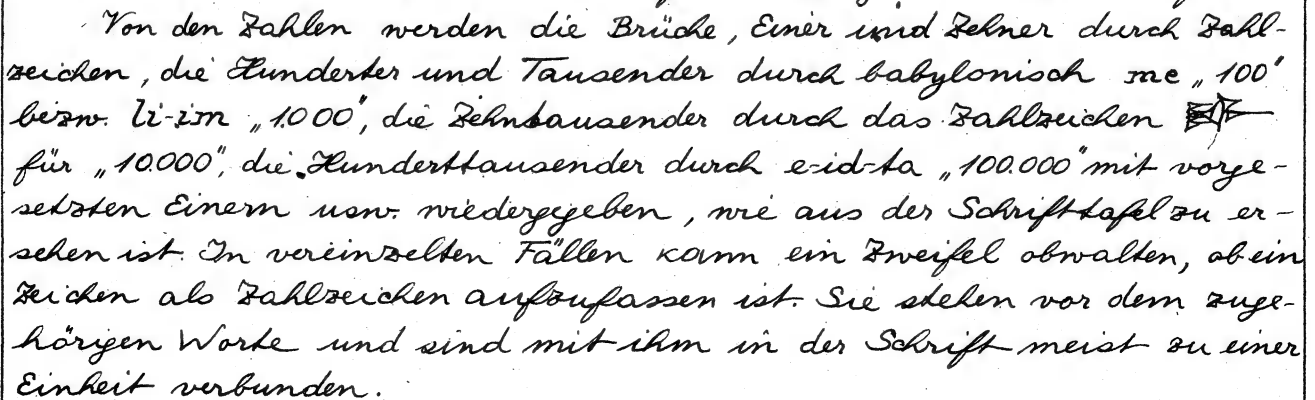 Von den Zahlen werden die Brüche, Einer und Zehner durch Zahl-
zeichen, die Hunderter und Tausender durch babylonisch me „100"
bezw. li-im „1000", die Zehntausender durch das Zahlzeichen
für „10.000", die Hunderttausender durch e-id-ta „100.000" mit vorge-
setzten Einern usw. wiedergegeben, wie aus der Schrifttafel zu er-
sehen ist. In vereinzelten Fällen kann ein Zweifel obwalten, ob ein
Zeichen als Zahlzeichen aufzufassen ist. Sie stehen vor dem zuge-
hörigen Worte und sind mit ihm in der Schrift meist zu einer
Einheit verbunden.